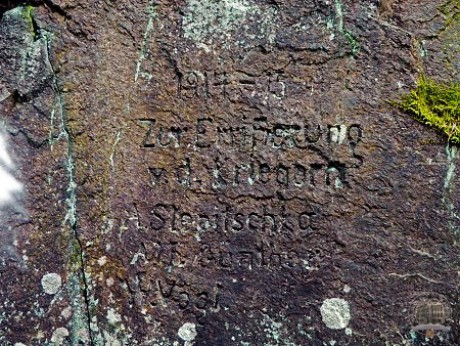 1914-15
Zur Erinnerung
v. d. Kriegern
A. Slepitschka
A.
F. Vogl